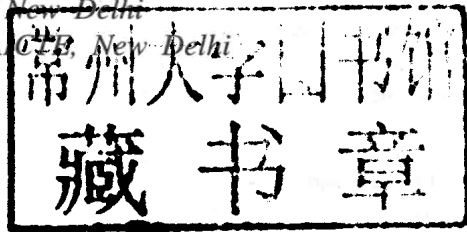 New Delhi
ICTE, New Delhi
常州大学图书馆
藏书章